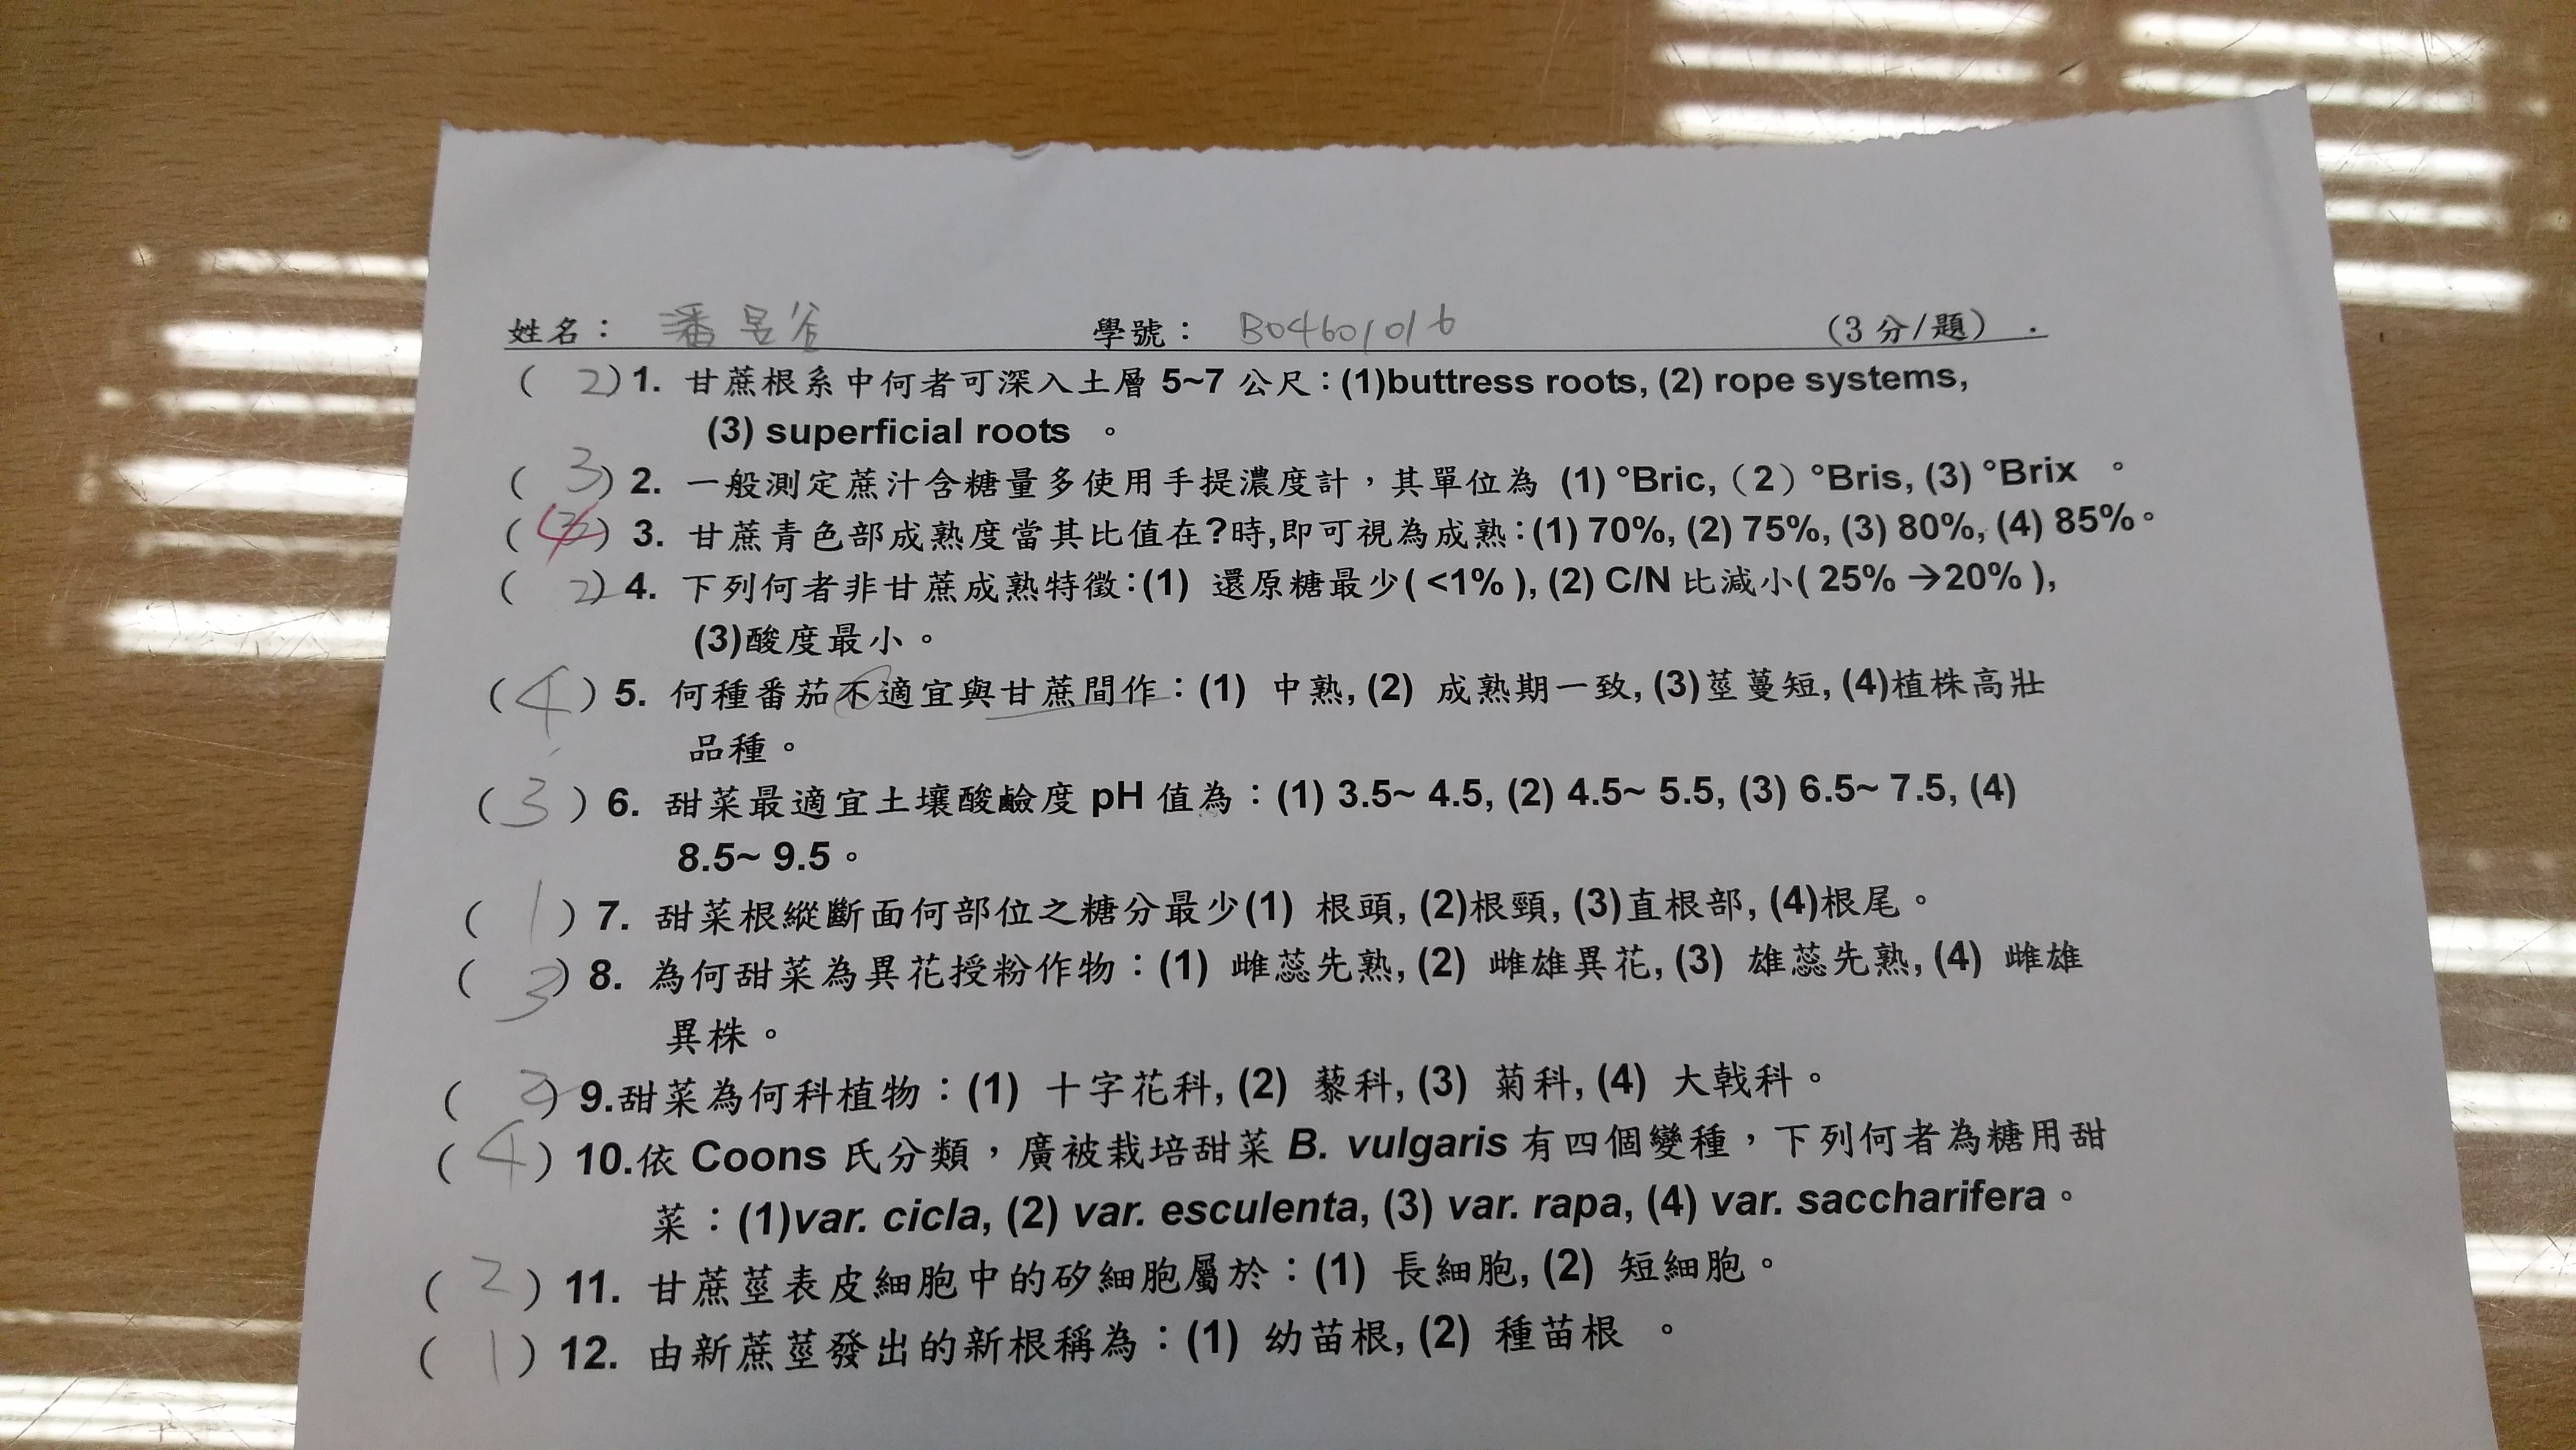 姓名： 潘呂谷 學號： B04601016 (3 分/題) .
( 2 ) 1. 甘蔗根系中何者可深入土層 5~7 公尺：(1)buttress roots, (2) rope systems,
(3) superficial roots 。
( 3 ) 2. 一般測定蔗汁含糖量多使用手提濃度計，其單位為 (1) °Bric,（2）°Bris, (3) °Brix 。
( ) 3. 甘蔗青色部成熟度當其比值在?時,即可視為成熟：(1) 70%, (2) 75%, (3) 80%, (4) 85%。
( 2 ) 4. 下列何者非甘蔗成熟特徵：(1) 還原糖最少( <1% ), (2) C/N 比減小( 25% →20% ),
(3)酸度最小。
( 4 ) 5. 何種番茄不適宜與甘蔗間作：(1) 中熟, (2) 成熟期一致, (3)莖蔓短, (4)植株高壯
品種。
( 3 ) 6. 甜菜最適宜土壤酸鹼度 pH 值為：(1) 3.5~ 4.5, (2) 4.5~ 5.5, (3) 6.5~ 7.5, (4)
8.5~ 9.5。
( 1 ) 7. 甜菜根縱斷面何部位之糖分最少(1) 根頭, (2)根頸, (3)直根部, (4)根尾。
( 3 ) 8. 為何甜菜為異花授粉作物：(1) 雌蕊先熟, (2) 雌雄異花, (3) 雄蕊先熟, (4) 雌雄
異株。
( 2 ) 9.甜菜為何科植物：(1) 十字花科, (2) 藜科, (3) 菊科, (4) 大戟科。
( 4 ) 10.依 Coons 氏分類，廣被栽培甜菜 B. vulgaris 有四個變種，下列何者為糖用甜
菜：(1)var. cicla, (2) var. esculenta, (3) var. rapa, (4) var. saccharifera。
( 2 ) 11. 甘蔗莖表皮細胞中的矽細胞屬於：(1) 長細胞, (2) 短細胞。
( 1 ) 12. 由新蔗莖發出的新根稱為：(1) 幼苗根, (2) 種苗根 。